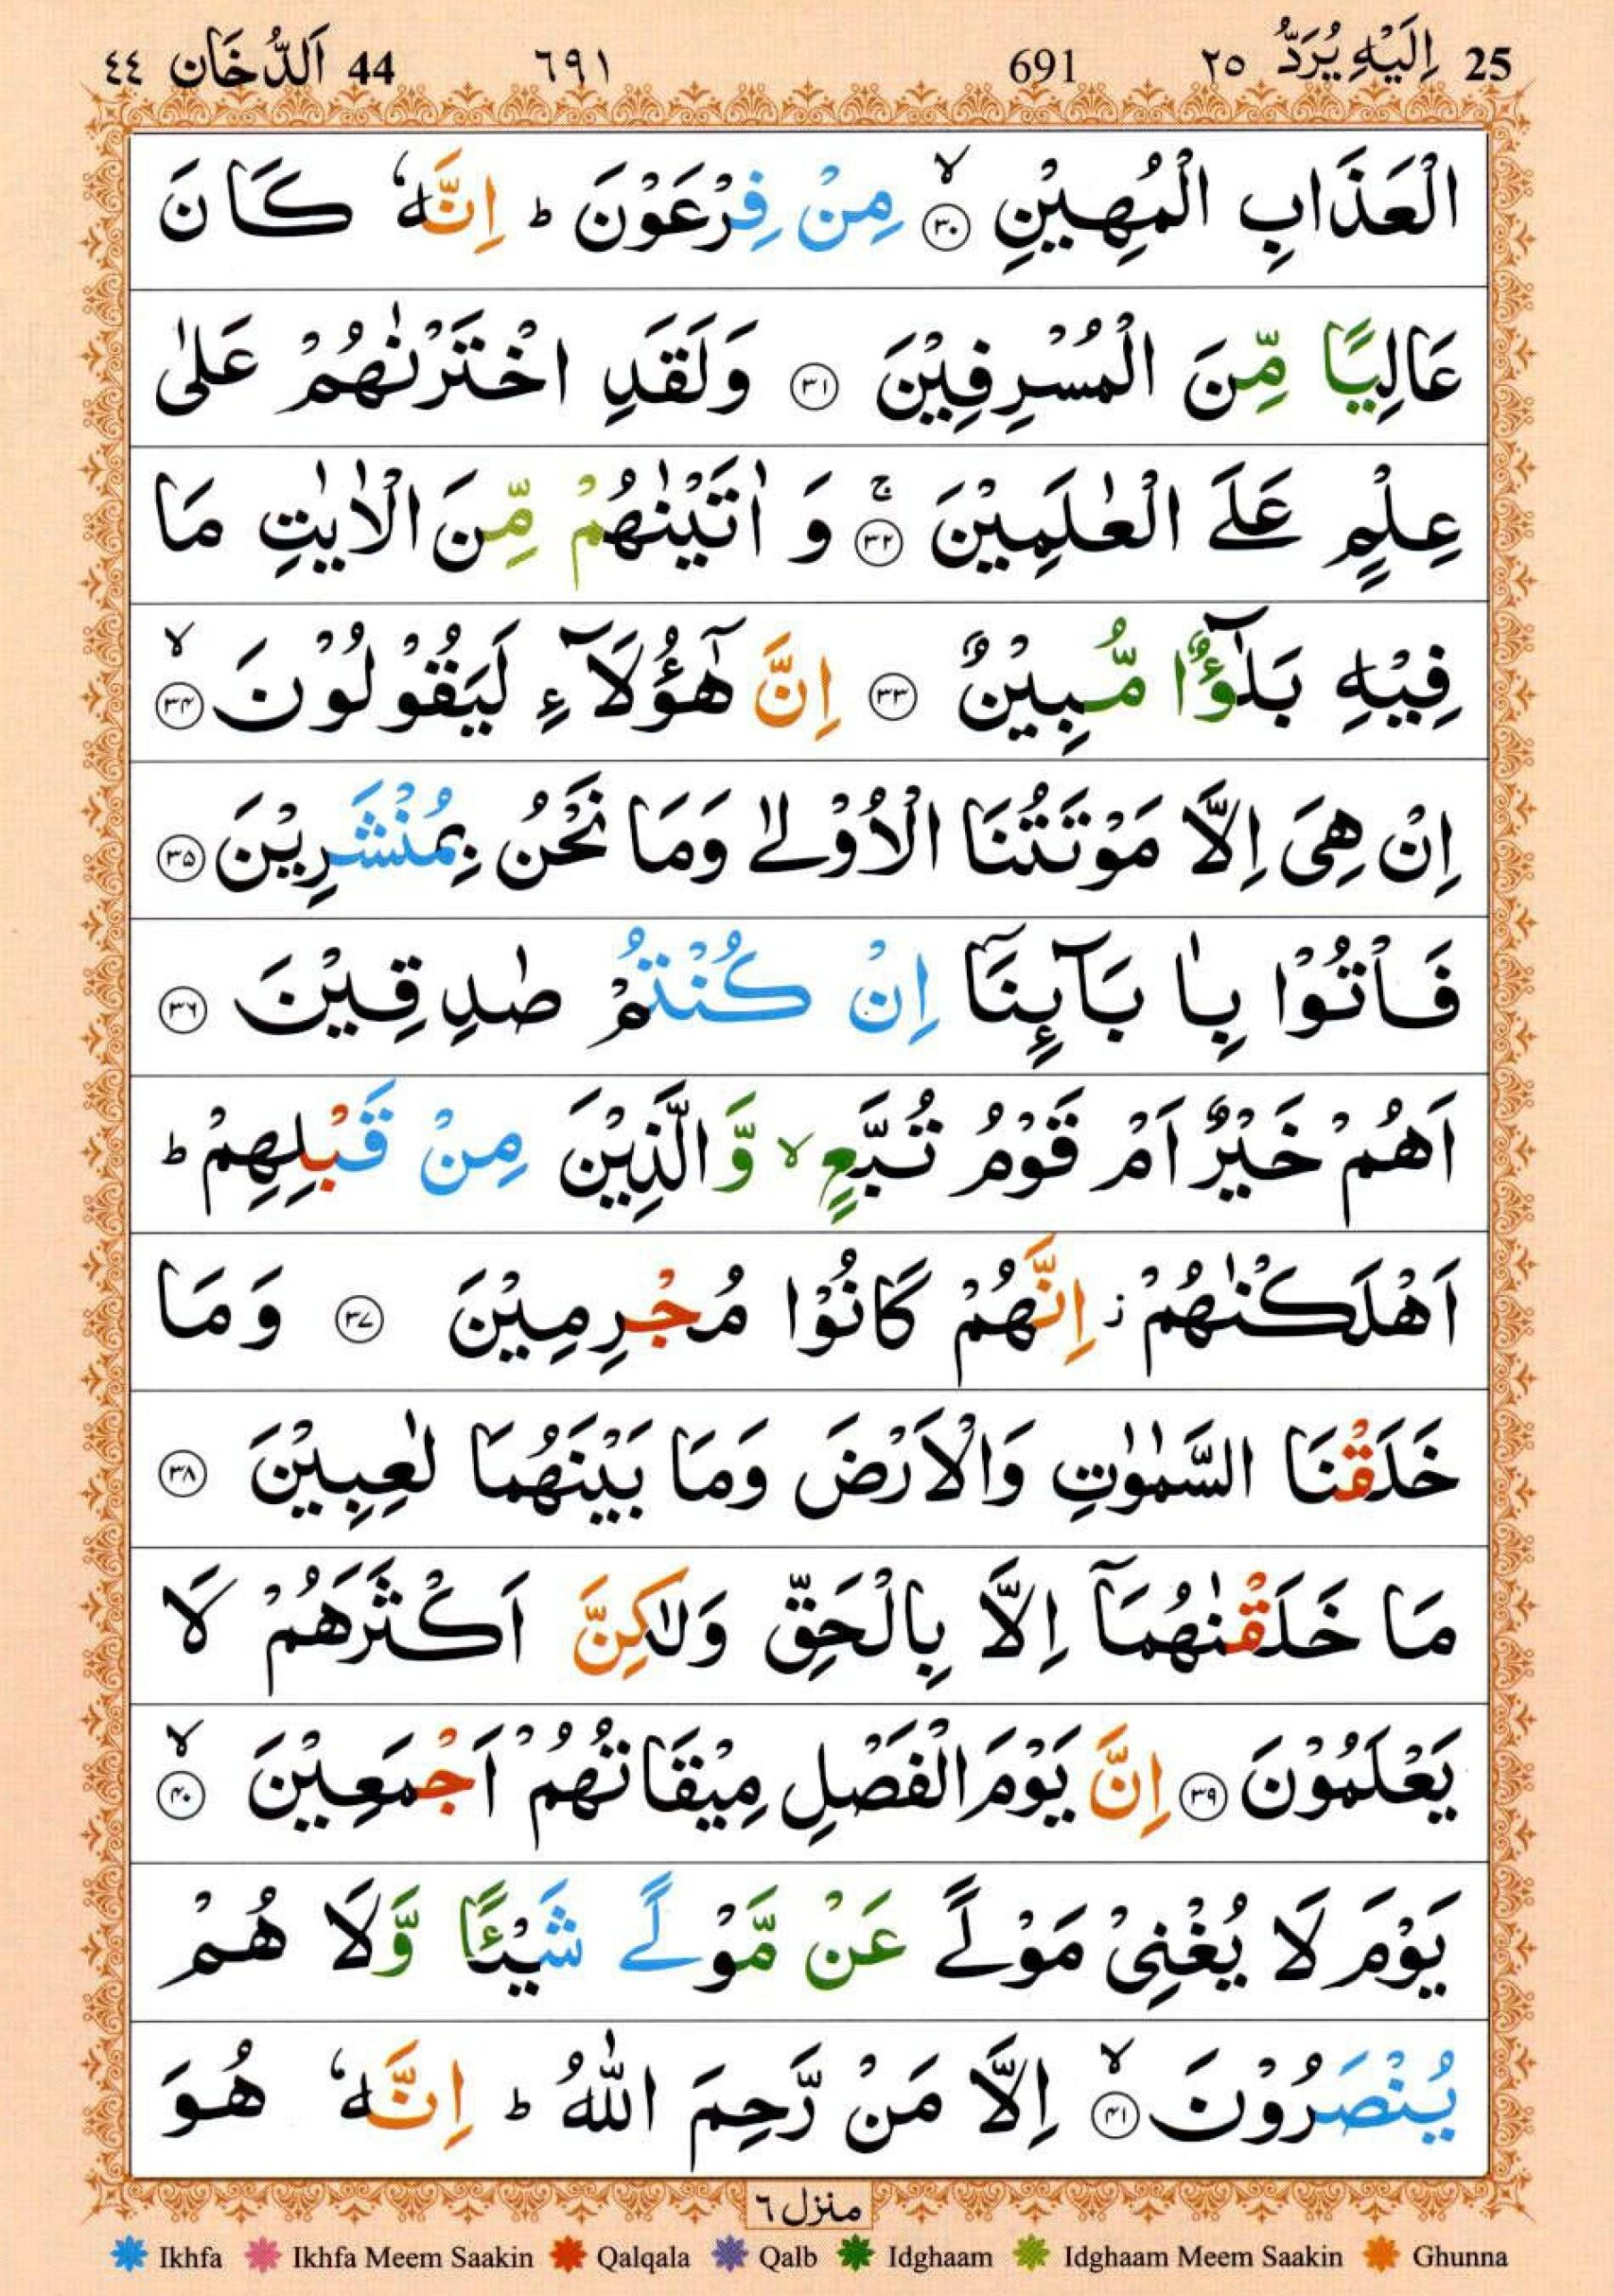 25 اِلَیْهِ یُرَدُّ ٢٥ 691 ٦٩١ 44 اَلدُّخَان ٤٤
الْعَذَابِ الْمُهِیْنِ ۙ﴿۳۰﴾ مِنْ فِرْعَوْنَ ؕ اِنَّهٗ كَانَ
عَالِیًا مِّنَ الْمُسْرِفِیْنَ ﴿۳۱﴾ وَلَقَدِ اخْتَرْنٰهُمْ عَلٰی
عِلْمٍ عَلَی الْعٰلَمِیْنَ ۚ﴿۳۲﴾ وَ اٰتَیْنٰهُمْ مِّنَ الْاٰیٰتِ مَا
فِیْهِ بَلٰٓؤٌا مُّبِیْنٌ ﴿۳۳﴾ اِنَّ هٰۤؤُلَآءِ لَیَقُوْلُوْنَ ۙ﴿۳۴﴾
اِنْ هِیَ اِلَّا مَوْتَتُنَا الْاُوْلٰی وَمَا نَحْنُ بِمُنْشَرِیْنَ ﴿۳۵﴾
فَاْتُوْا بِاٰ بَآئِنَاۤ اِنْ كُنْتُمْ صٰدِقِیْنَ ﴿۳۶﴾
اَهُمْ خَیْرٌ اَمْ قَوْمُ تُبَّعٍ ۙ وَّالَّذِیْنَ مِنْ قَبْلِهِمْ ؕ
اَهْلَكْنٰهُمْ ؗ اِنَّهُمْ كَانُوْا مُجْرِمِیْنَ ﴿۳۷﴾ وَمَا
خَلَقْنَا السَّمٰوٰتِ وَالْاَرْضَ وَمَا بَیْنَهُمَا لٰعِبِیْنَ ﴿۳۸﴾
مَا خَلَقْنٰهُمَاۤ اِلَّا بِالْحَقِّ وَلٰكِنَّ اَكْثَرَهُمْ لَا
یَعْلَمُوْنَ ﴿۳۹﴾ اِنَّ یَوْمَ الْفَصْلِ مِیْقَاتُهُمْ اَجْمَعِیْنَ ۙ﴿۴۰﴾
یَوْمَ لَا یُغْنِیْ مَوْلًی عَنْ مَّوْلًی شَیْئًا وَّلَا هُمْ
یُنْصَرُوْنَ ۙ﴿۴۱﴾ اِلَّا مَنْ رَّحِمَ اللّٰهُ ؕ اِنَّهٗ هُوَ
منزل ٦
Ikhfa Ikhfa Meem Saakin Qalqala Qalb Idghaam Idghaam Meem Saakin Ghunna